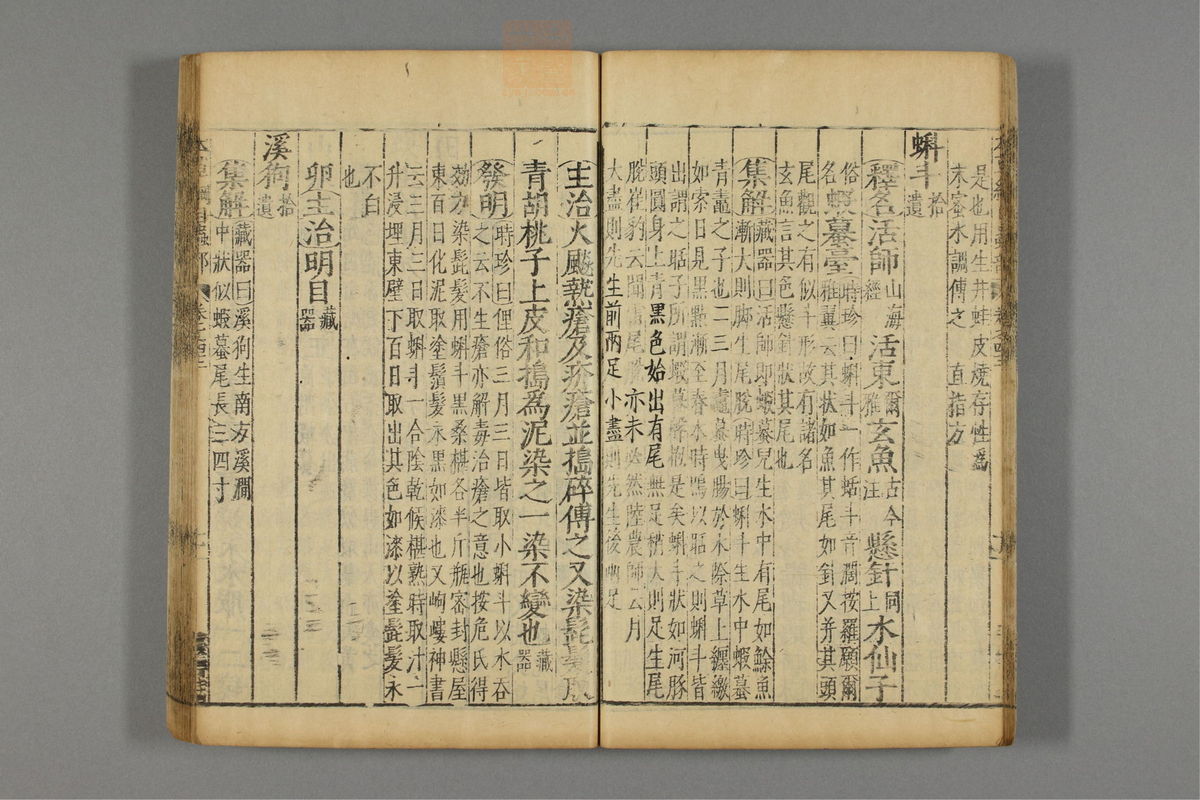 是也用生井蛙皮燒存性爲
末蜜水調傅之 直指方
蝌斗拾遺
釋名活師山海經 活東爾雅 玄魚古今注 懸針同上 水仙子
俗名 蝦蟇臺時珍曰蝌斗一作蛞斗音闊按羅願爾
雅翼云其狀如魚其尾如針又并其頭
尾觀之有似斗形故有諸名
玄魚言其色懸針狀其尾也
集解藏器曰活師即蝦蟇兒生水中有尾如鮽魚
漸大則脚生尾脫時珍曰蝌斗生水中蝦蟇
青鼃之子也二三月鼃蟇曳腸於水際草上纏繳
如索日見黑點漸至春水時鳴以聒之則蝌斗皆
出謂之聒子所謂蝦蟇聲抱是矣蝌斗狀如河豚
頭圓身上青黑色始出有尾無足稍大則足生尾
脫崔豹云聞雷尾脫亦未必然陸農師云月
大盡則先生前兩足小盡則先生後兩足
主治火飈熱瘡及疥瘡並搗碎傅之又染髭髮取
青胡桃子上皮和搗為泥染之一染不變也藏器
發明時珍曰俚俗三月三日皆取小蝌斗以水吞
之云不生瘡亦解毒治瘡之意也按危氏得
效方染髭髮用蝌斗黑桑椹各半斤瓶密封懸屋
東百日化泥取塗鬚髮永黑如漆也又峋嶁神書
云三月三日取蝌斗一合陰乾候椹熟時取汁一
升浸埋東壁下百日取出其色如漆以塗髭髮永
不白
也
卵主治明目藏器
溪狗拾遺
集解藏器曰溪狗生南方溪澗
中狀似蝦蟇尾長三四寸